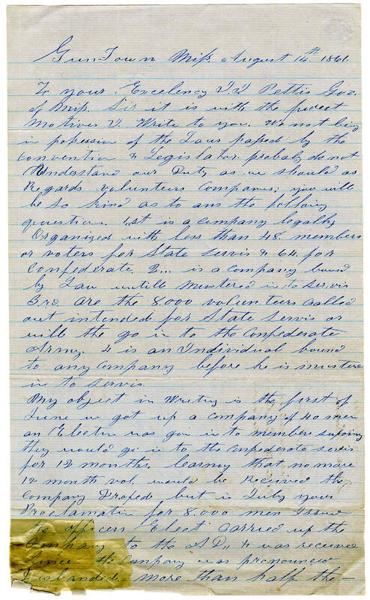 GunTown Miss August 14th 1861
To your Excelency J J Pettis Gov.
of Miss. Sir it is with the purest
Motives I Write to you. We not being
in possession of the Laws passed by the
Convention & Legislator probably do not
Understand our Duty as we should as
Regards volunteers Companies; you will
be so kind as to ans the following
question. 1st is a Company legally
Organized with less than 48 members
or voters for State servis & 64 for
Confederate 2... is a Company bound
by Law untill mustered in to servis
3rd are the 8000 volunteers called
out intended for State servis or
will the go in to the Confederate
Army. 4 is an Individual bound
to any Company before he is mustered
in to servis
My object in Writing is the first of
June we got up a company of 40 men
an Election was given to members
they would go in to the Confederate servis
for 12 months, learning that no more
12 month vol would be Received the
Company Droped but in July your
Proclamation for 8,000 men
officers Elect carried up the
Company to the & was received
since the Company was pronounced
more than half the